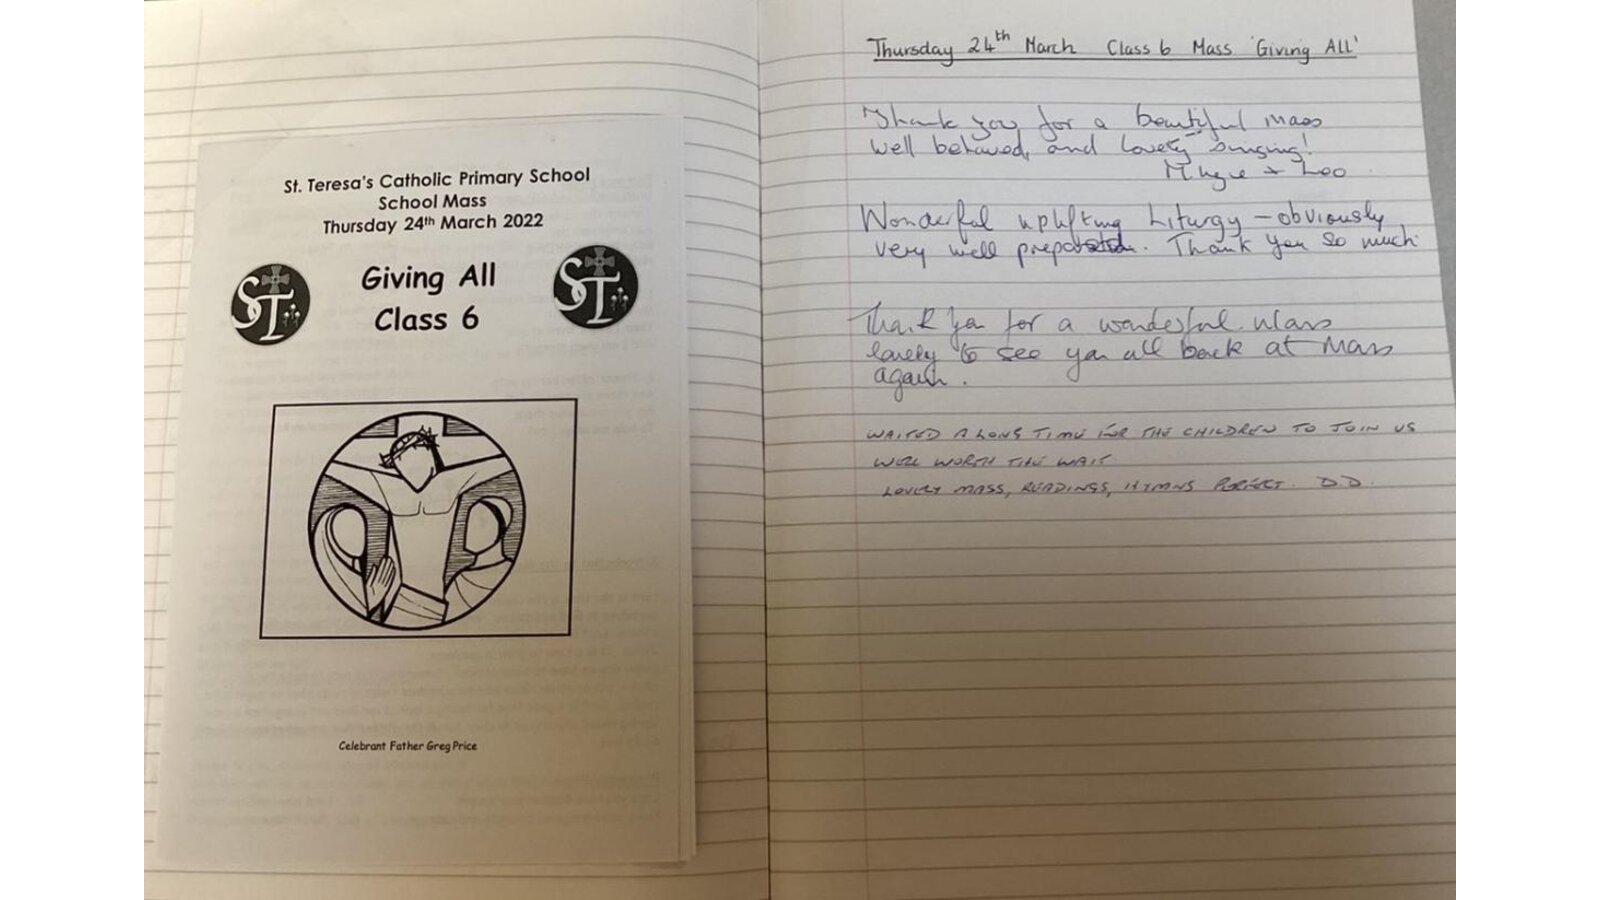 St. Teresa's Catholic Primary School
School Mass
Thursday 24th March 2022
Giving All
Class 6
Celebrant Father Greg Price
Thursday 24th March Class 6 Mass 'Giving All'
Thank you for a beautiful mass
well behaved, and lovely singing!
+ Leo
Wonderful uplifting Liturgy – obviously
very well Thank you so much
Thank you for a wonderful Mass
lovely to see you all back at Mass
again.
WAITED A LONG TIME FOR THE CHILDREN TO JOIN US
WELL WORTH THE WAIT
LOVELY MASS, READINGS, HYMNS PERFECT. D.D.